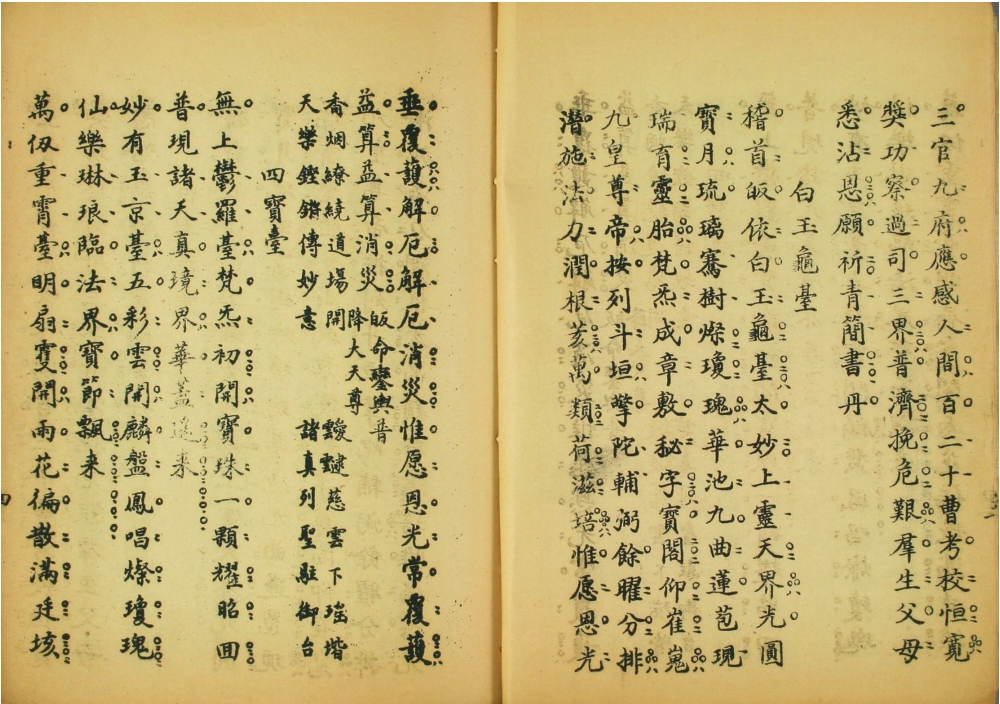 三官九府應感人間百二十曹考校恒寬
獎功察過司三界普濟挽危艱羣生父母
悉沾恩願祈青簡書丹
白玉龜臺
稽首皈依白玉龜臺太妙上靈天界光圓
寶月琉璃騫樹燦瓊瑰華池九曲蓮苞現
瑞育靈胎梵炁成章敷秘字寶閣仰崔嵬
九皇尊帝按列斗垣擎陀輔弼餘曜分排
潛施法力潤根荄萬類荷滋培惟愿恩光
垂覆護解厄解厄消災惟愿恩光常覆護
益算益算消災皈命
香烟繚繞道場開降
天樂鏗鏘傳妙意
大天尊
鑾輿普
靉靆慈雲下瑤堦
諸真列聖駐御台
四寶臺
無上鬱羅臺梵炁初開寶珠一顆耀昭回
普現諸天真境界華蓋遙来
妙有玉京臺五彩雲開麟盤鳳唱燦瓊瑰
仙樂琳琅臨法界寶節飄来
萬仭重霄臺明扇雙開雨花徧散滿廷垓
四